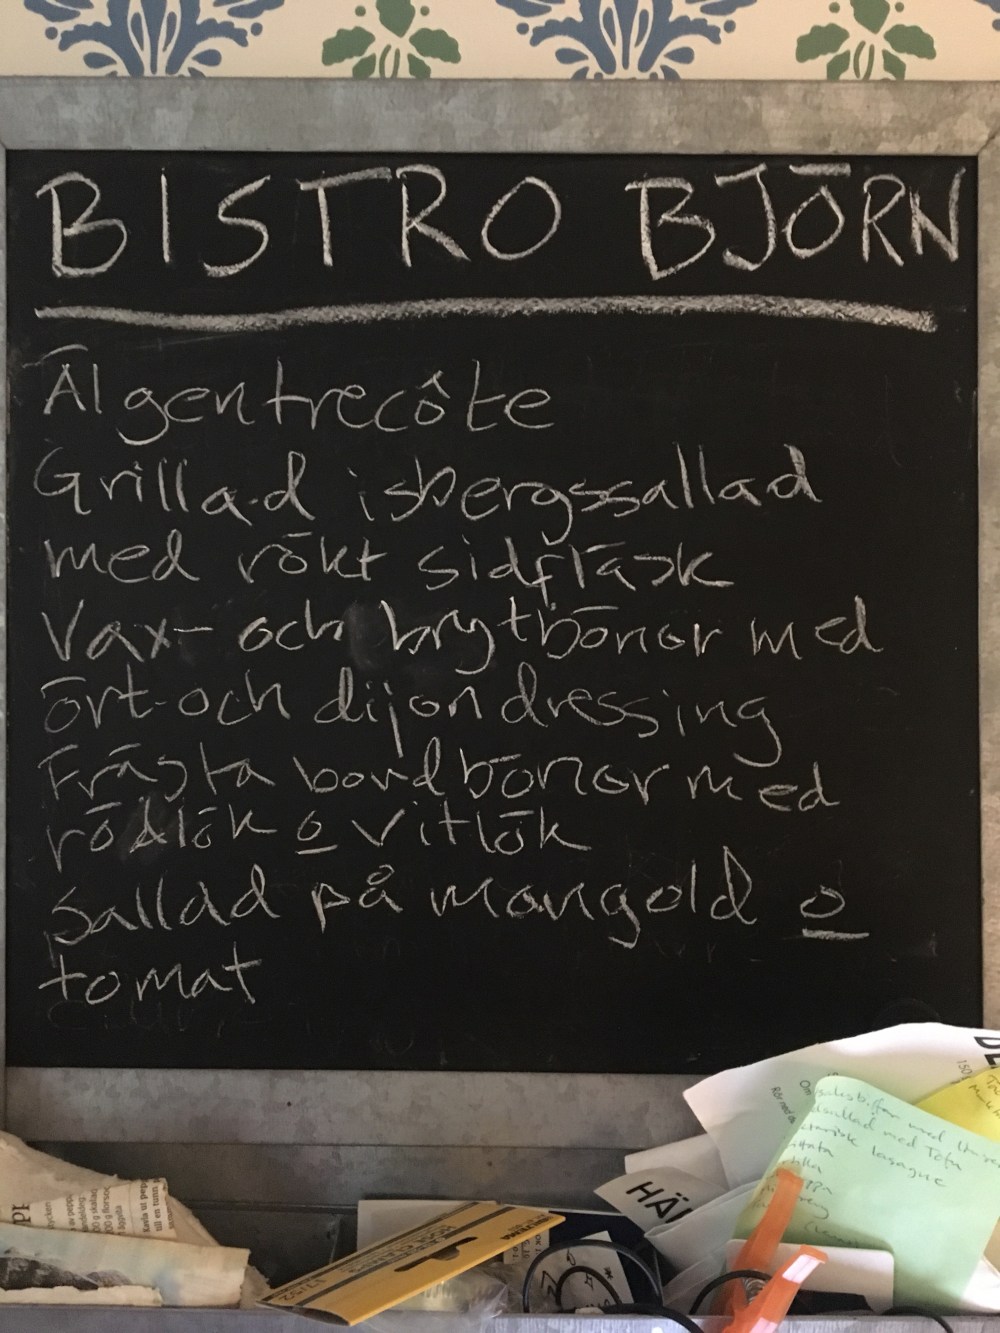 BISTRO BJÖRN
Älgentrecôte
Grillad isbergssallad
med rökt sidfläsk
Vax- och brytbönor med
ört- och dijondressing
Frästa bondbönor med
rödlök o vitlök
Sallad på mangold o
tomat
HÄ
med
sallad med Tofu
lasagne